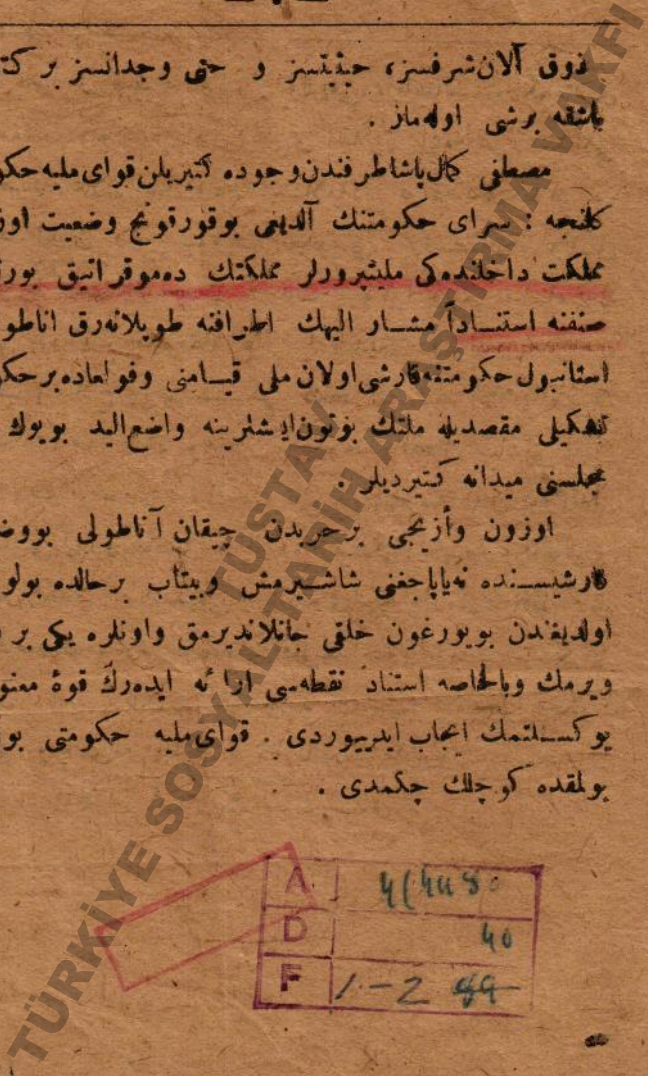 ذوق آلان شرفسز، حیثیتسز و حتی وجدانسز بر
باشقه برشی اوله‌ماز .
مصطفی کمال پاشا طرفندن وجوده کتیریلن قوای ملیه
کلنجه : سرای حکومتنك آلدیغی بو قورقونج وضعیت
مملکت داخلنده‌کی ملیتپرورلر مملکتك ده‌موقراتیق
صنفنه استناداً مشار الیهك اطرافنه طوپلانه‌رق
استانبول حکومتنه قارشی اولان ملی قیامنی و فوالعاده بر
تشکیلی مقصدیله ملتك بوتون ایشلرینه واضع الید بویوك
مجلسنی میدانه کتیردیلر .
اوزون و أزیجی بر حربدن چیقان آناطولی
قارشیسنده نه یاپاجغنی شاشیرمش و بیتاب بر حالده
اولدیغندن بو یورغون خلقی جانلاندیرمق و اونلره یکی بر
ویرمك و بالخاصه استناد نقطه‌سی ارائه ایده‌رك قوهٔ
یوکسلتمك ایجاب ایدییوردی . قوای ملیه حکومتی
بولمقده کوچلك چکمدی .
A
D 40
F 1-2 89
TÜSTAV
TÜRKİYE SOSYAL TARİH ARAŞTIRMA VAKFI